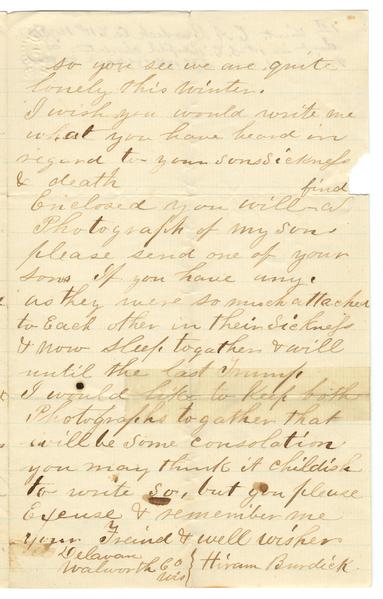 so you see we are quite
lonely this Winter.
I wish you would write me
what you have heard in
regard to your sons Sickness
& death
Enclosed you will find a
Photograph of my Son
please send one of your
sons If you have any.
as they were so much attached
to Each other in their Sickness
& Now sleep togather & will
until the last Trump
I would like to keep both
Photographs togather that
will be some consolation
you may think it childish
to write so, but you please
Excuse & remember me
your Freind & well wisher
Hiram Burdick.
Delavan
Walworth Co
Wis